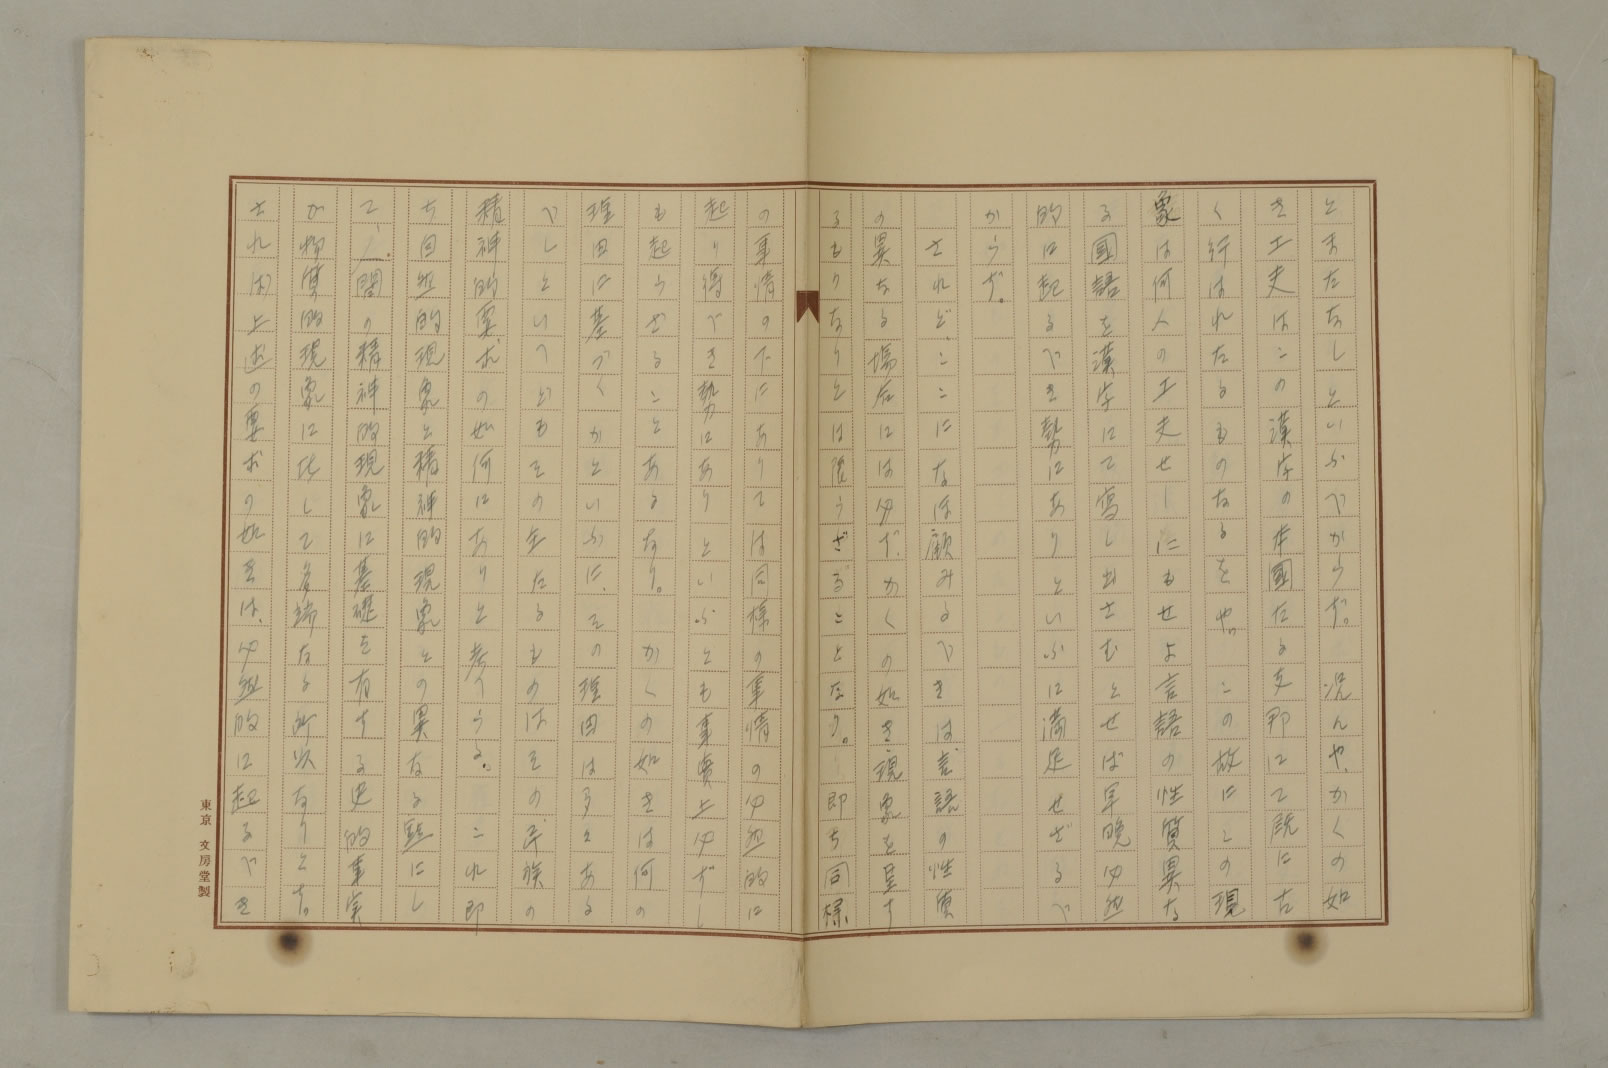 とまたなしといふべからず。況んや、かくの如
き工夫はこの漢字の本國たる支那にて既に古
く行はれたるものなるをや。この故にこの現
象は何人の工夫せしにもせよ言語の性質異な
る國語を漢字にて寫し出さむとせば早晩必然
的に起るべき勢にありといふに滿足せざるべ
からず。
されど、ここになほ顧みるべきは言語の性質
の異なる場合には必ず、かくの如き現象を呈す
るものなりとは限らざることなり。即ち同樣
の事情の下にありては同樣の事情の必然的に
起り得べき勢にありといふとも事實上必ずし
も起らざることあるなり。かくの如きは何の
理由に基づくかといふに、その理由は多々ある
べしといへどもその主たるものはその民族の
精神的要求の如何にありと考へうる。これ即
ち自然的現象と精神的現象との異なる點にし
て、人間の精神的現象に基礎を有する史的事実
が物質的現象に比して多端なる所以なりとす。
されば上述の要求の如きは、必然的に起るべき
東京 文房堂製